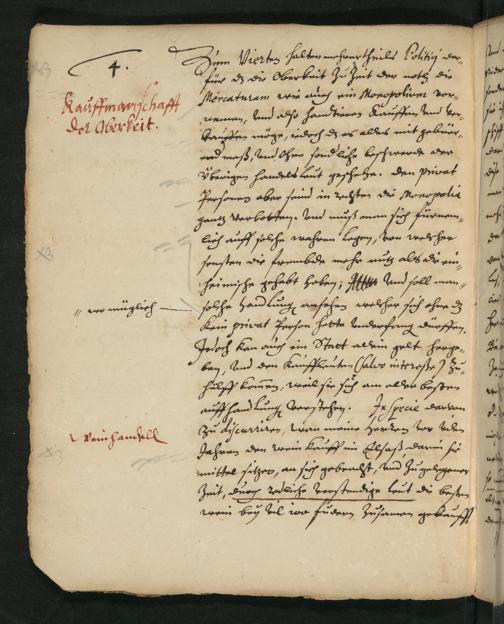 4.
Kauffmanschafft
der Oberkeit.
Zum Vierten halten mehrertheils Politici der-
für dz die Oberkeit zu Zeit der noth die
Mercaturam wie auch ein Monopolium vor-
nemen, und also handtieren kauffen und ver-
kauffen möge, iedoch dz es alles mit gebüer
und maß, und ohne sondliche beschwerde der
Übrigen handelsleut geschehe. den privat
Personen aber seind in rechten die Monopolia
gantz verbotten. Und muß man sich fürnem-
lich auff solche wahren legen, von welcher
sonsten die frembde mehr nutz als die ein-
heimische gehabt haben; und soll man
" wo müglich
solche handlung ansehen welcher sich ohne dz
kein privat Person hette underfang dürffen.
Jedoch kan auch ein Statt allein gelt herge-
ben, und den kauffleuten (salvo interesse) zu
hülff kommen, weil sie sich am aller besten
auff handlung verstehen. In specie darvon
zu discurriren, wan meine herren vor vilen
weinhandell
Jahren den wein kauff im Elsaß, darin sie
mittel sitzen, an sich gebracht, und zu gelegener
Zeit, durch redliche verstendige leut die besten
wein bey vil 100 fudern zusamen gekaufft